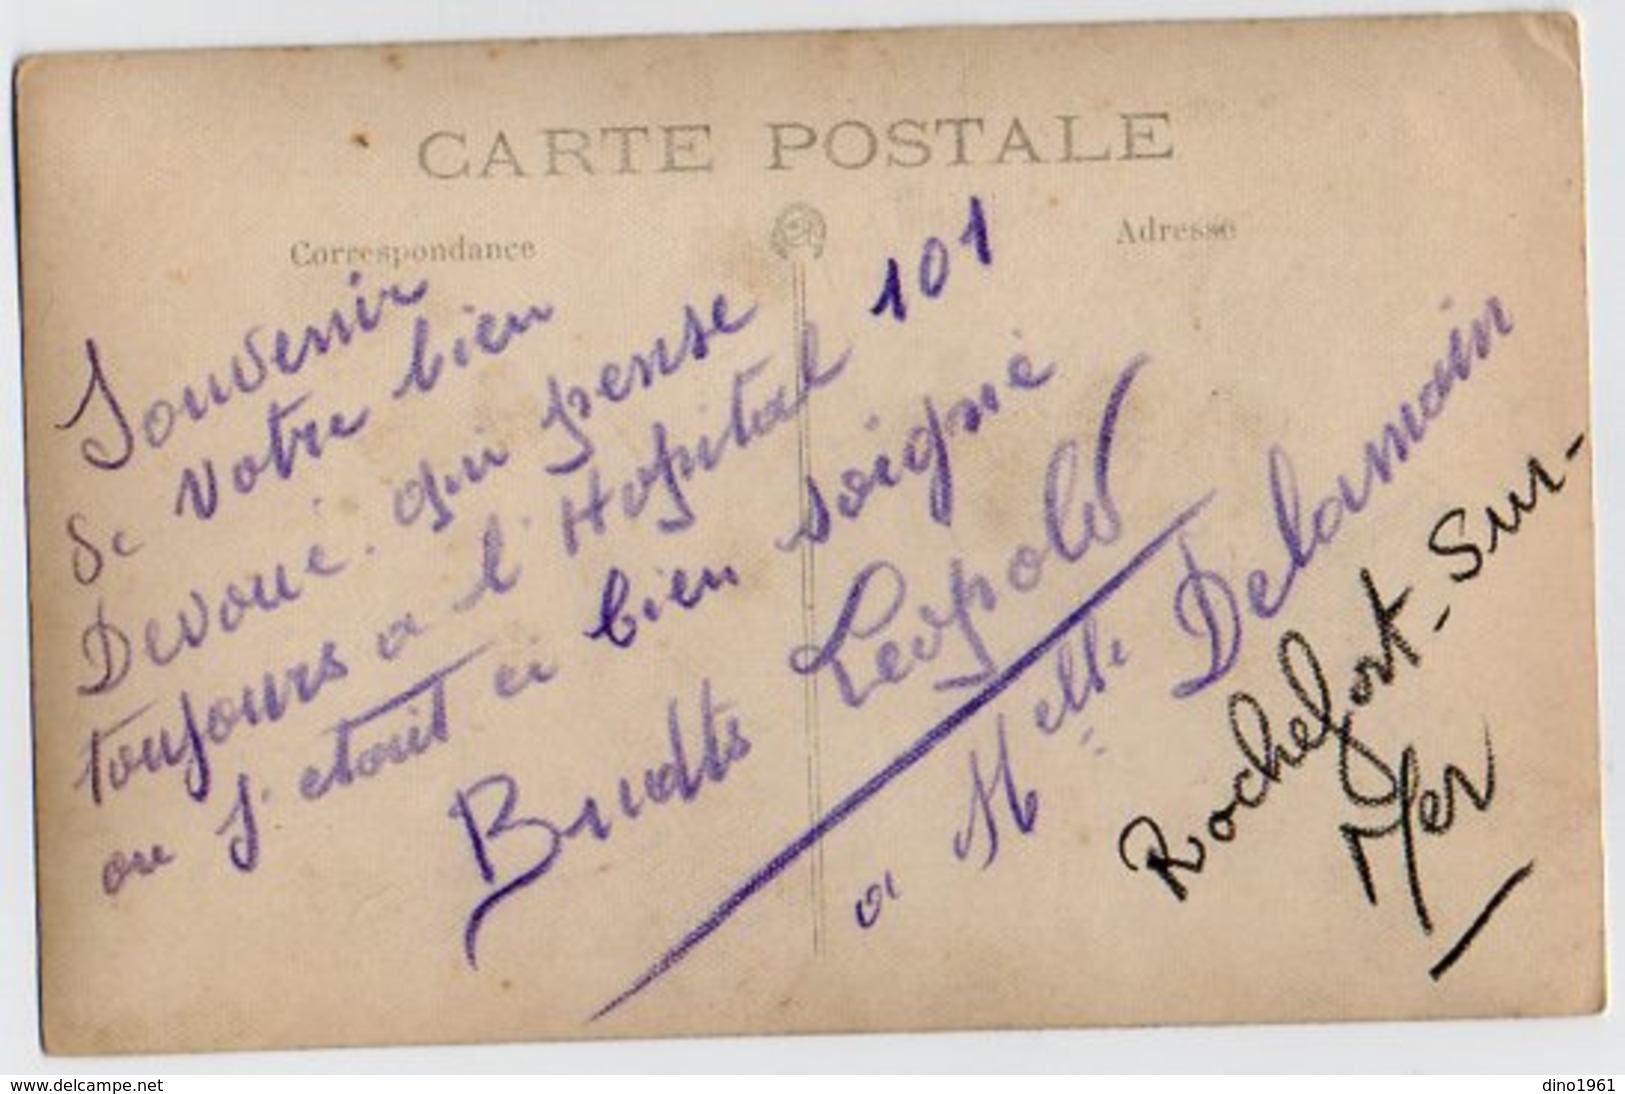 CARTE POSTALE
Correspondance
Adresse
Souvenir
de votre bien
Devoué. qui pense
toujours a l'Hopital 101
ou J'etait ci bien soigné
Léopold
a Melle Delamain
Rochefort-Sur-
Mer
www.delcampe.net
dino1961